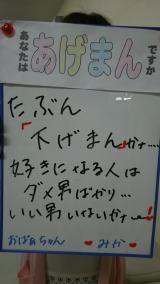 あなたは あげまん ですか
たぶん
「下げまんかナ…
好きになる人は
ダメ男ばかり…
いい男いないかナー!
おばあちゃん ♥ みか ♥